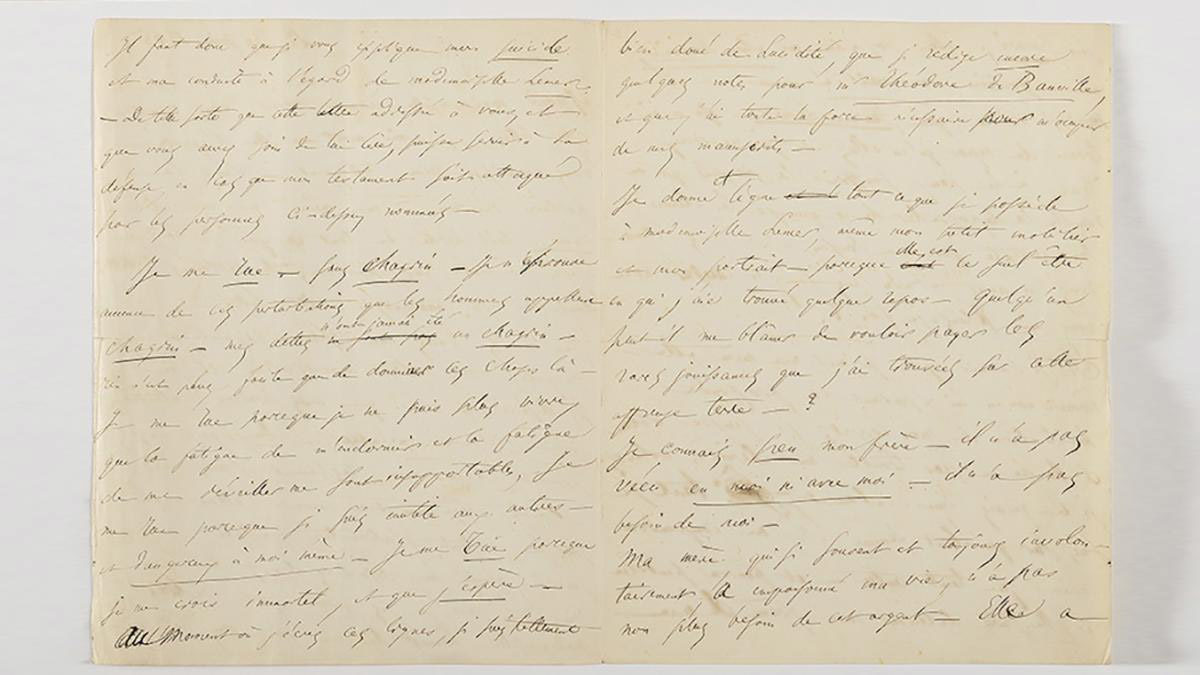 Il faut donc que je vous explique mon suicide
et ma conduite à l'égard de mademoiselle Lemer.
— De telle sorte que cette lettre adressée à vous, et
que vous aurez soin de lui lire, puisse servir à sa
défense, en cas que mon testament soit attaqué
par les personnes ci-dessus nommées —
Je me tue — sans chagrin — Je n'éprouve
aucune de ces perturbations que les hommes appellent
n'ont jamais été
chagrin — mes dettes ne sont pas un chagrin —
Rien n'est plus facile que de dominer ces choses là —
Je me tue parceque je ne puis plus vivre,
que la fatigue de m'endormir et la fatigue
de me réveiller me sont insupportables, Je
me tue parceque je suis inutile aux autres —
et dangereux à moi même — Je me tue parceque
je me crois immortel, et que j'espère —
Au moment où j'écris ces lignes, je suis tellement
bien doué de lucidité, que je rédige encore
quelques notes pour mr Théodore de Banville,
et que j'ai toute la force nécessaire pour m'occuper
de mes manuscrits —
Je donne et lègue tout ce que je possède
à mademoiselle Lemer, même mon petit mobilier
et mon portrait — parceque elle est le seul être
en qui j'aie trouvé quelque repos — Quelqu'un
peut-il me blâmer de vouloir payer les
rares jouissances que j'ai trouvées sur cette
affreuse terre — ?
Je connais peu mon frère — il n'a pas
vécu en moi ni avec moi — il n'a pas
besoin de moi —
Ma mère qui si souvent et toujours involon-
tairement a empoisonné ma vie, n'a pas
non plus besoin de cet argent — Elle a